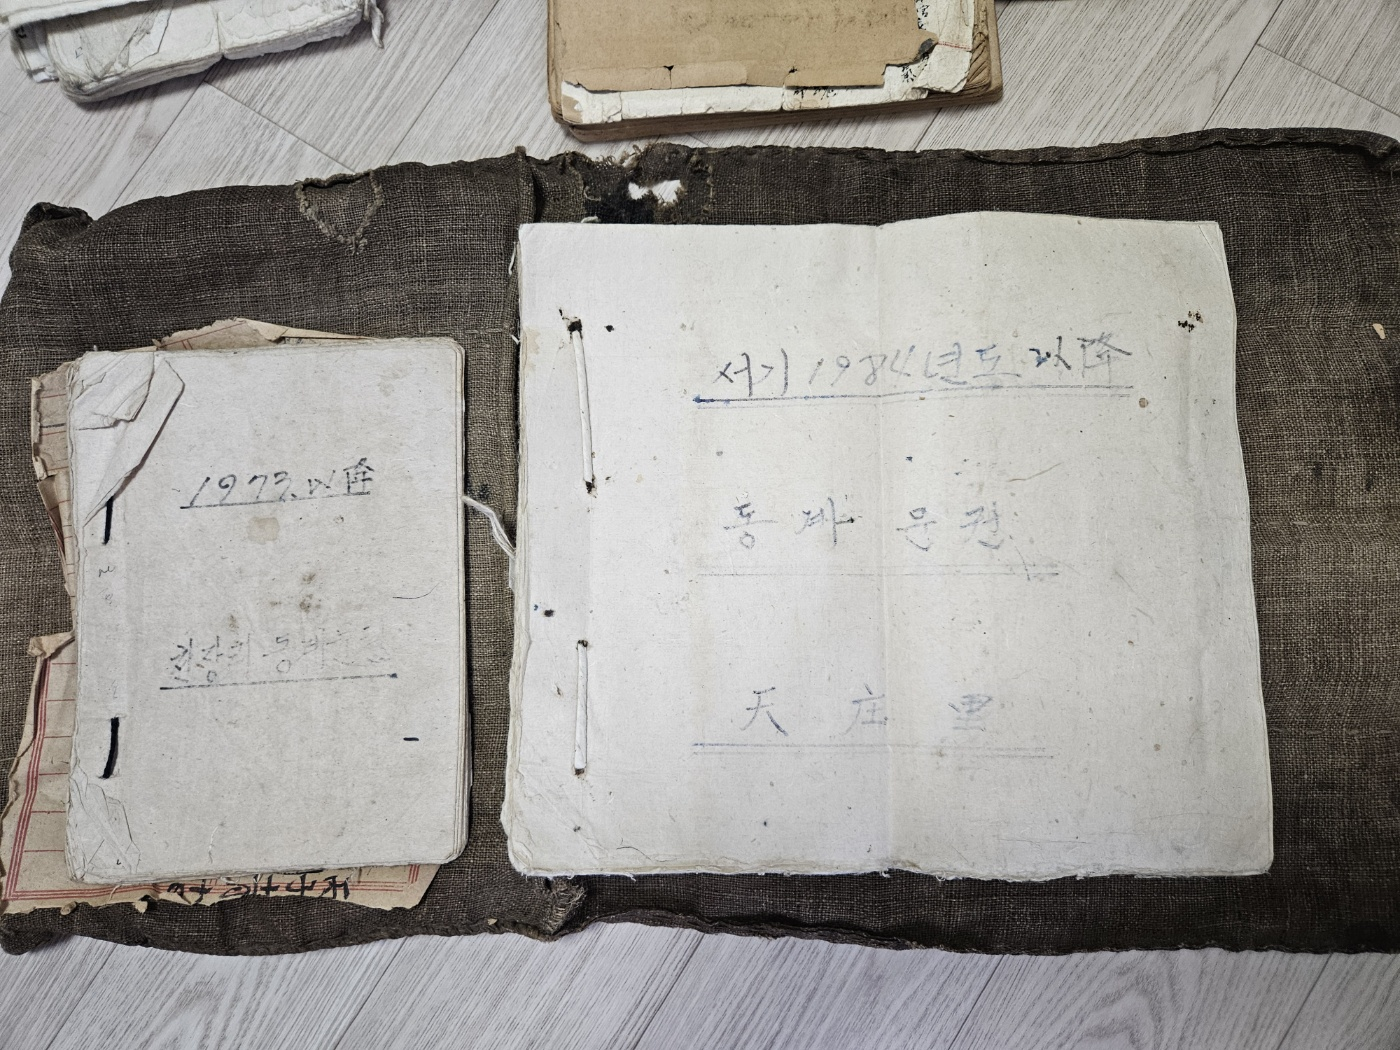 1973. 以降
천장리 동계문건
서기 1984년도 以降
동계 문권
天庄里